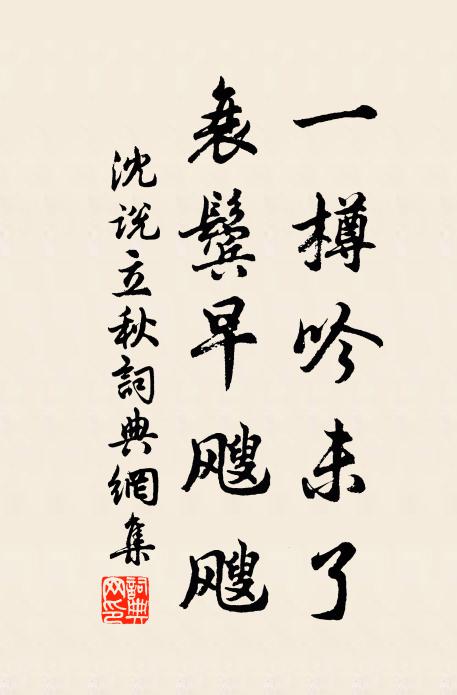 一樽吟未了
衰鬓早颼颼
沈说立秋詞典網集
詞典网印